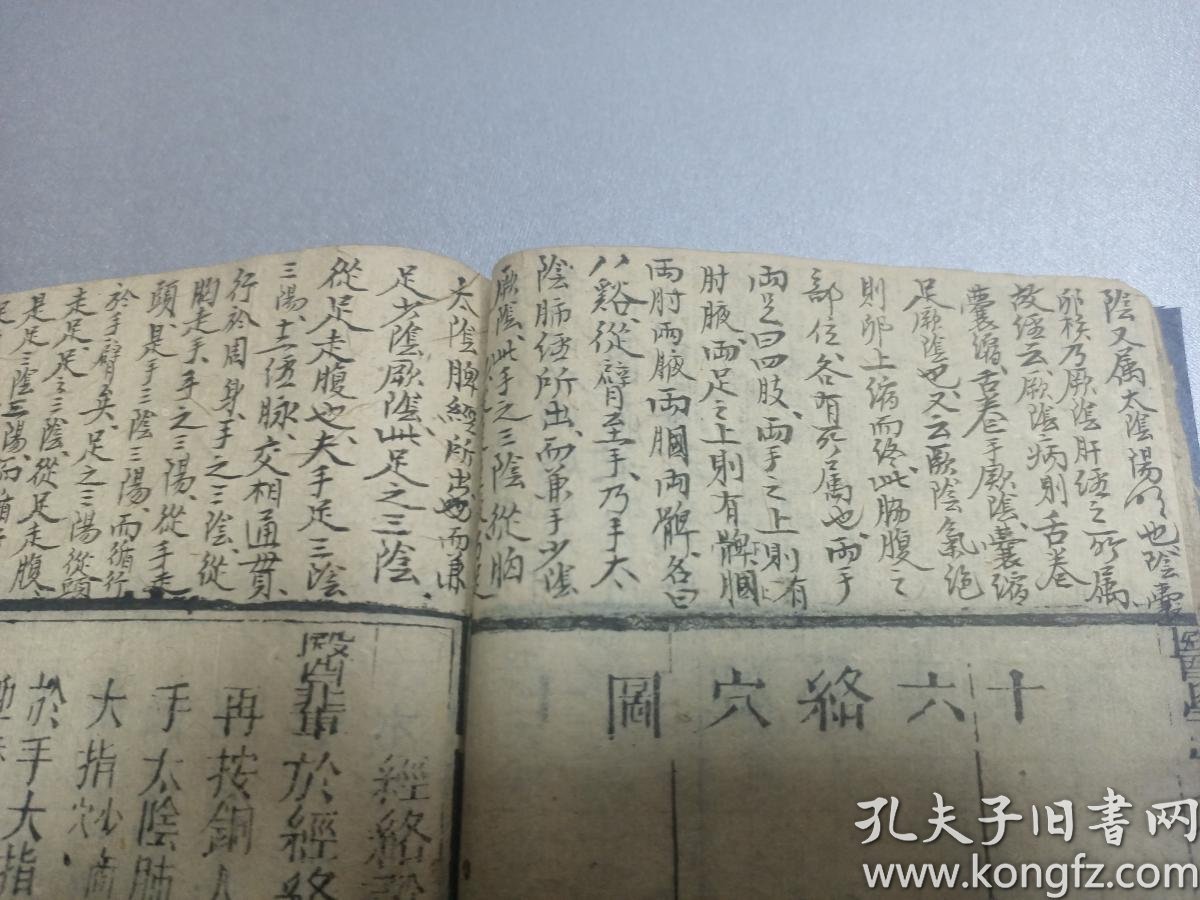 陰又属太陰陽明也陰囊
卵核乃厥陰肝経之所属
故経云厥陰病則舌卷
囊縮舌卷手厥陰囊縮
足厥陰也又云厥陰氣絶
則卵上縮而終此胁腹之
部位各有所属也両手
両足曰四肢両手之上則有
肘腋両足之上則有髀膕
両肘両腋両膕両髀名曰
八谿從臂至手乃手太
陰肺経所出而兼手少陰
厥陰此手之三陰從胸
太陰脾經所出而兼
足少陰厥陰此足之三陰
從足走腹也夫手足三陰
三陽十二经脉交相通貫
行於周身手之三陰從
胸走手手之三陽從手走
頭是手三陰三陽而循行
於手臂矣足之三陽從頭
走足足之三陰從足走腹
是足三陰三陽而循行
十六絡穴圖
經絡
醫書於經絡
再按銅人
手太陰肺
大指
於手大指
孔夫子旧书网
www.kongfz.com